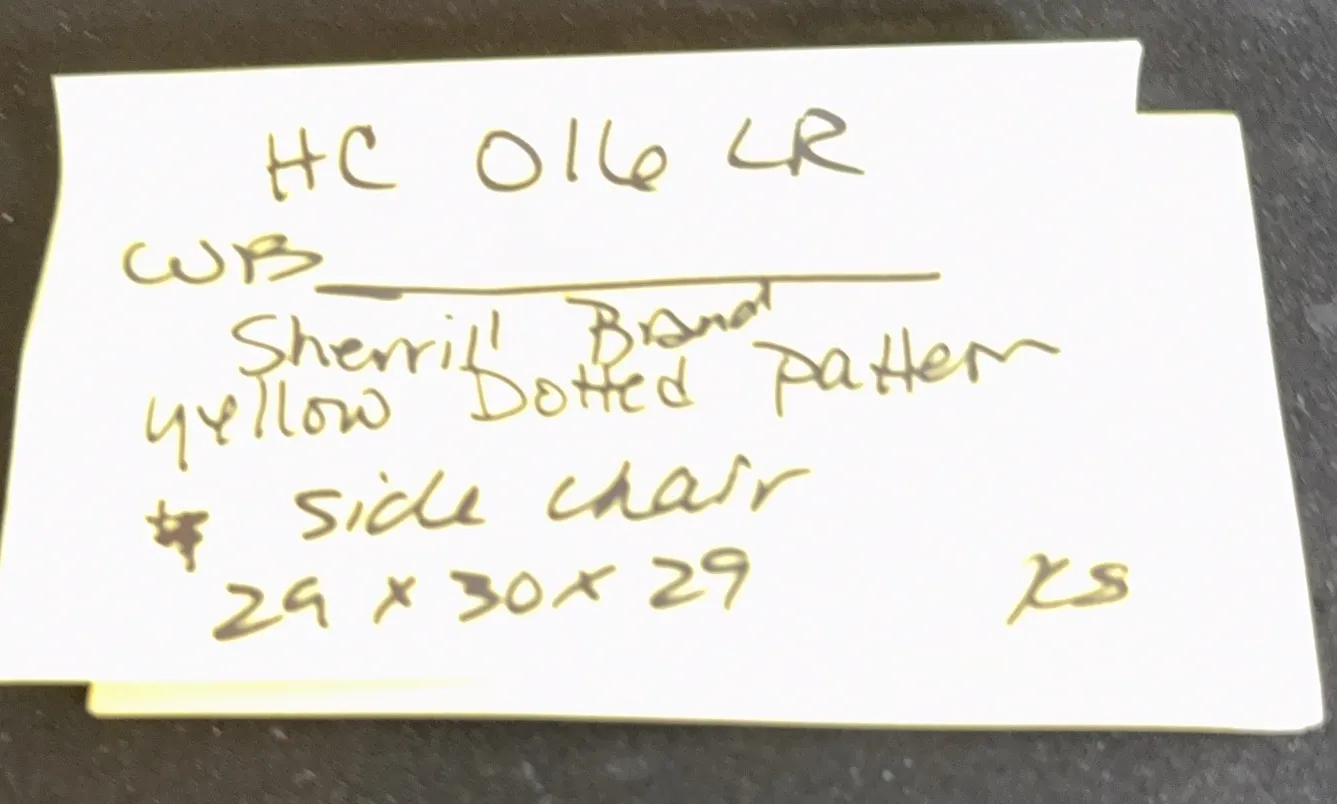 HC 016 LR
WB
Sherrill Brand
yellow Dotted pattern
* side chair
29 x 30 x 29 xs